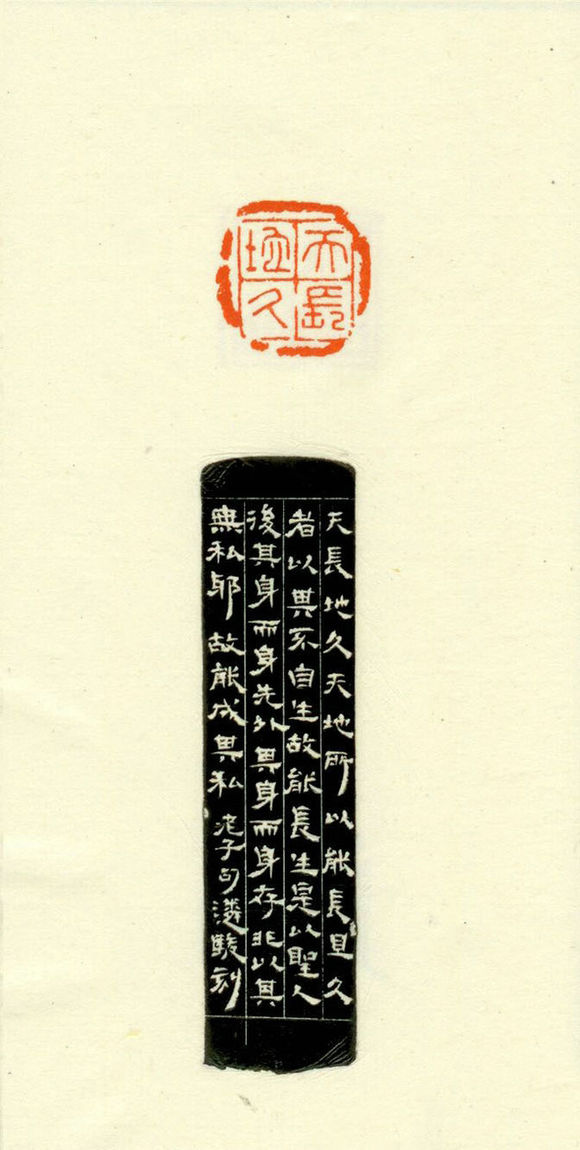 天長
地久
天長地久天地所以能長且久
者以其不自生故能長生是以聖人
後其身而身先外其身而身存非以其
無私邪故能成其私 老子句 駿刻